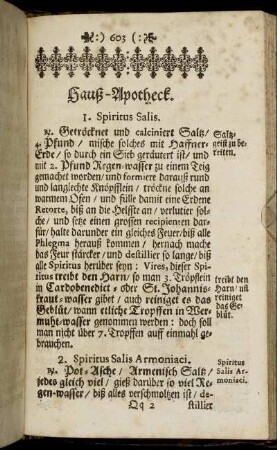 :) 603 (:
Hauß-Apotheck.
1. Spiritus Salis.
℞. Getröcknet und calciniert Saltz/
4. Pfund/ mische solches mit Haffner-
Erde/ so durch ein Sieb geräutert ist/ und
mit 2. Pfund Regen-wasser zu einem Teig
gemachet worden/ und formiere darauß rund
und langlechte Knöpfflein/ tröckne solche an
warmem Ofen/ und fülle damit eine Erdene
Retorte, biß an die Helffte an/ verlutier solche/
und setze einen grossen recipienten dar-
für/ halte darunder ein gleiches Feuer/ biß alle
Phlegma herauß kommen/ hernach mache
das Feur stärcker/ und destillier so lange/ biß
alle Spiritus herüber seyn: Vires, dieser Spi-
ritus treibt den Harn/ so man 3. Tröpfflein
in Cardobenedict- oder St. Johannis-
kraut-wasser gibt/ auch reiniget es das
Geblüt/ wann etliche Tropffen in Wer-
muht-wasser genommen werden: doch soll
man nicht über 7. Tropffen auff einmahl ge-
brauchen.
2. Spiritus Salis Armoniaci.
℞. Pot-Asche/ Armenisch Saltz/
jedes gleich viel/ gieß darüber so viel Re-
gen-wasser/ biß alles verschmoltzen ist/ de-
Qq 2 stillier
Saltz-
geist zu be-
reiten.
treibt den
Harn/ uñ
reiniget
das Ge-
blüt.
Spiritus
Salis Ar-
moniaci.